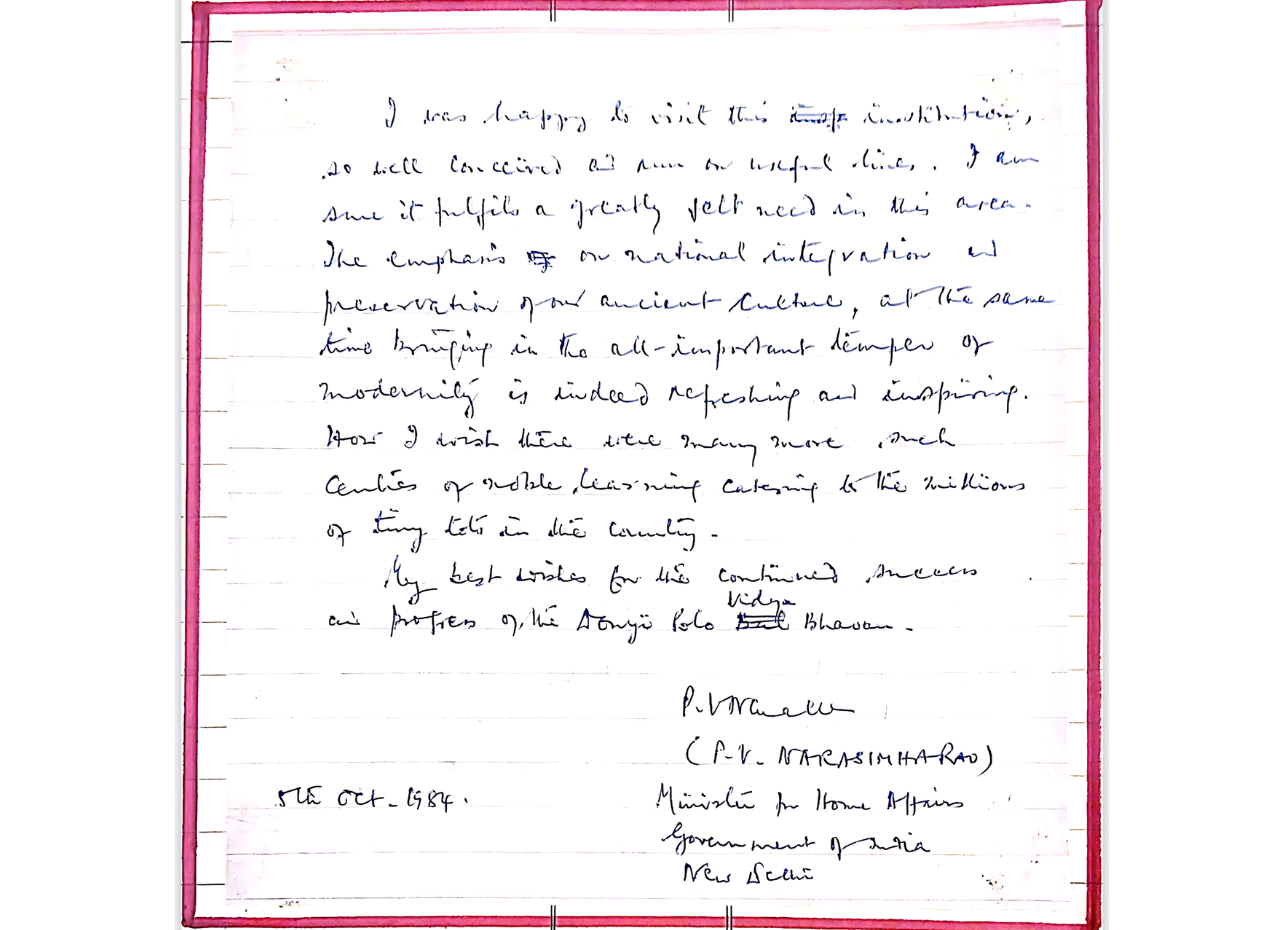 I was happy to visit this institution,
so well conceived and run on useful lines. I am
sure it fulfils a greatly felt need in this area.
The emphasis on national integration and
preservation of our ancient culture, at the same
time bringing in the all-important temper of
modernity is indeed refreshing and inspiring.
How I wish there were many more such
centres of noble learning catering to the millions
of tiny tots in the country.
My best wishes for the continued success
and progress of the Donyi Polo Vidya Bhavan.
(P.V. NARASIMHA RAO)
5th Oct. 1984.
Minister for Home Affairs
Government of India
New Delhi